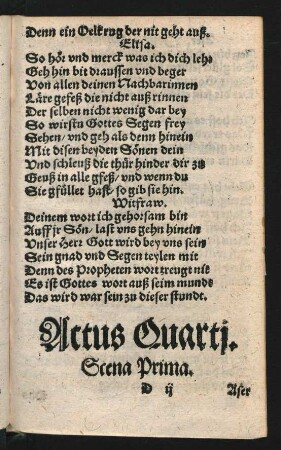 Denn ein Oelkrug der nit geht auß.
Elisa.
So hör vnd merck was ich dich lehr
Geh hin bit draussen vnd beger
Von allen deinen Nachbarinnen
Läre gefeß die nicht auß rinnen
Der selben nicht wenig dar bey
So wirstu Gottes Segen frey
Sehen / vnd geh als denn hinein
Mit disen beyden Sönen dein
Vnd schleuß die thür hinder dir zu
Geuß in alle gfeß / vnd wenn du
Sie gfüllet hast / so gib sie hin.
Witfraw.
Deinem wort ich gehorsam bin
Auff jr Sön / last vns gehn hinein
Vnser Herr Gott wird bey vns sein
Sein gnad vnd Segen teylen mit
Denn des Propheten wort treugt nit
Es ist Gottes wort auß seim munde
Das wird war sein zu dieser stunde.
Actus Quartj.
Scena Prima.
D ij Aser